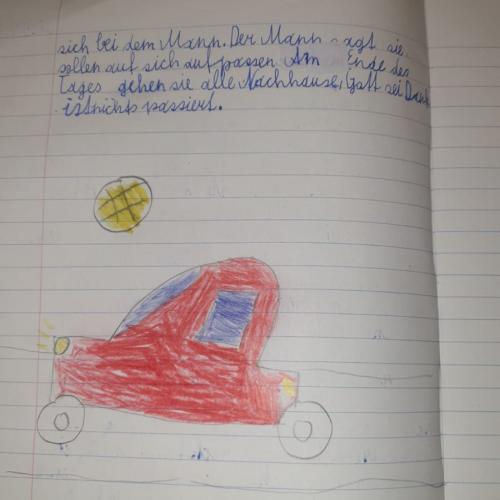 sich bei dem Mann. Der Mann sagt sie
sollen auf sich aufpassen. Am Ende des
Tages gehen sie alle Nachhause, Gott sei Dank
ist nichts passiert.